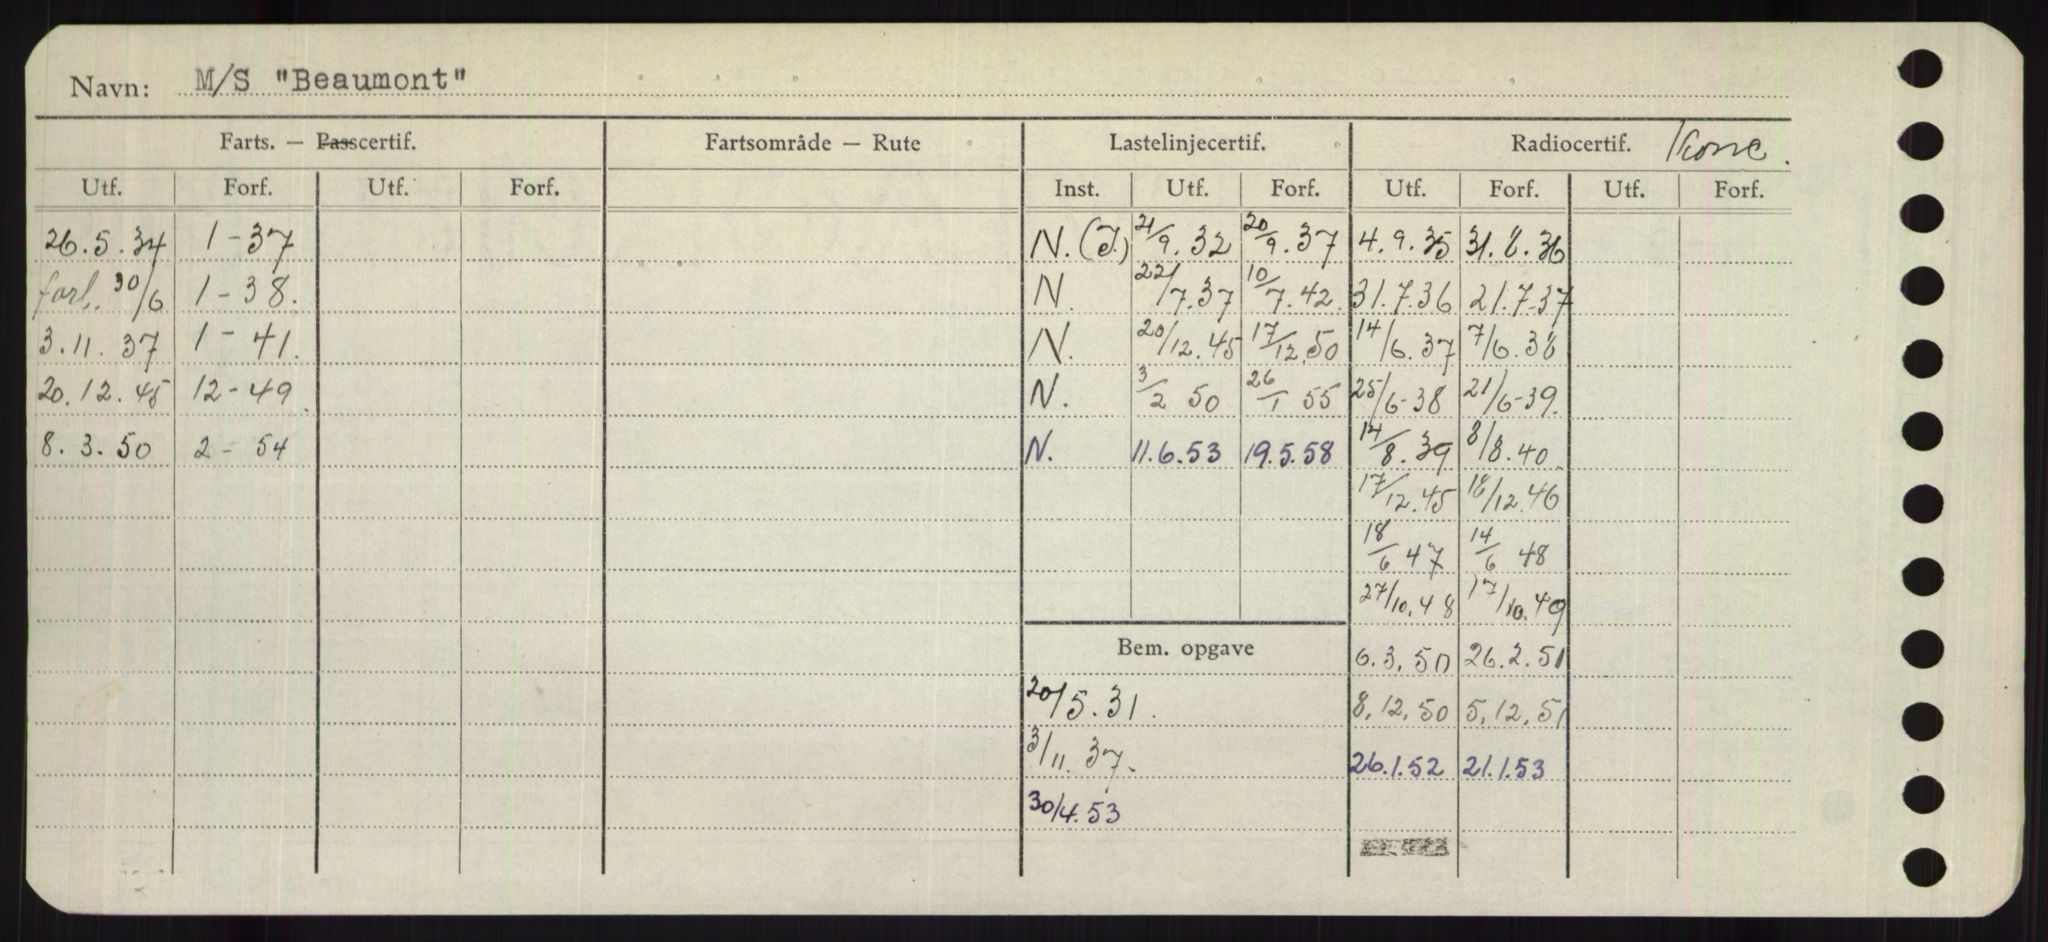 Navn: M/S "Beaumont"
Farts. — Passcertif. Fartsområde — Rute Lastelinjecertif. Radiocertif.
Utf. Forf. Utf. Forf. Inst. Utf. Forf. Utf. Forf. Utf. Forf.
26.5.34 1-37 N. (I.) 21/9.32 20/9.37 4.9.35 31.8.36
forl. 30/6 1-38. N. 22/7.37 10/7.42 31.7.36 21.7-37
3.11.37 1-41. N. 20/12.45 17/12.50 14/6.37 7/6.38
20.12.45 12-49 N. 3/2 50 26/1 55 25/6-38 21/6-39.
8.3.50 2-54 N. 11.6.53 19.5.58 14/8.39 8/8.40
17/12.45 18/12.46
18/6 47 14/6 48
27/10.48 17/10.49
Bem. opgave 6.3.50 26.2.51
20/5.31. 8.12.50 5.12.51
3/11.37. 26.1.52 21.1.53
30/4.53